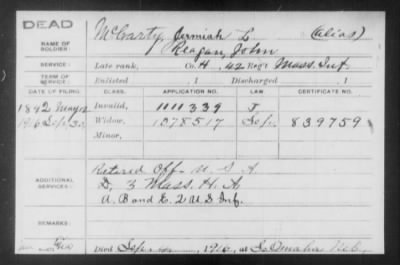 DEAD
McCarty, Jermiah L (alias)
Reagan, John
NAME OF SOLDIER:
SERVICE: Late rank, Co. H, 42 Reg't Mass. Inf.
TERM OF SERVICE: Enlisted , 1 Discharged , 1
DATE OF FILING. CLASS. APPLICATION NO. LAW. CERTIFICATE NO.
1892 May Invalid, 1111339 J
1916 Widow, 1078517 839759
Minor,
ADDITIONAL SERVICES:
Retired Off. U.S.A.
D, 3 Mass. H.A.
A. B and E. 2 U.S. Inf.
REMARKS:
Died , 1916, at So. Omaha Neb.